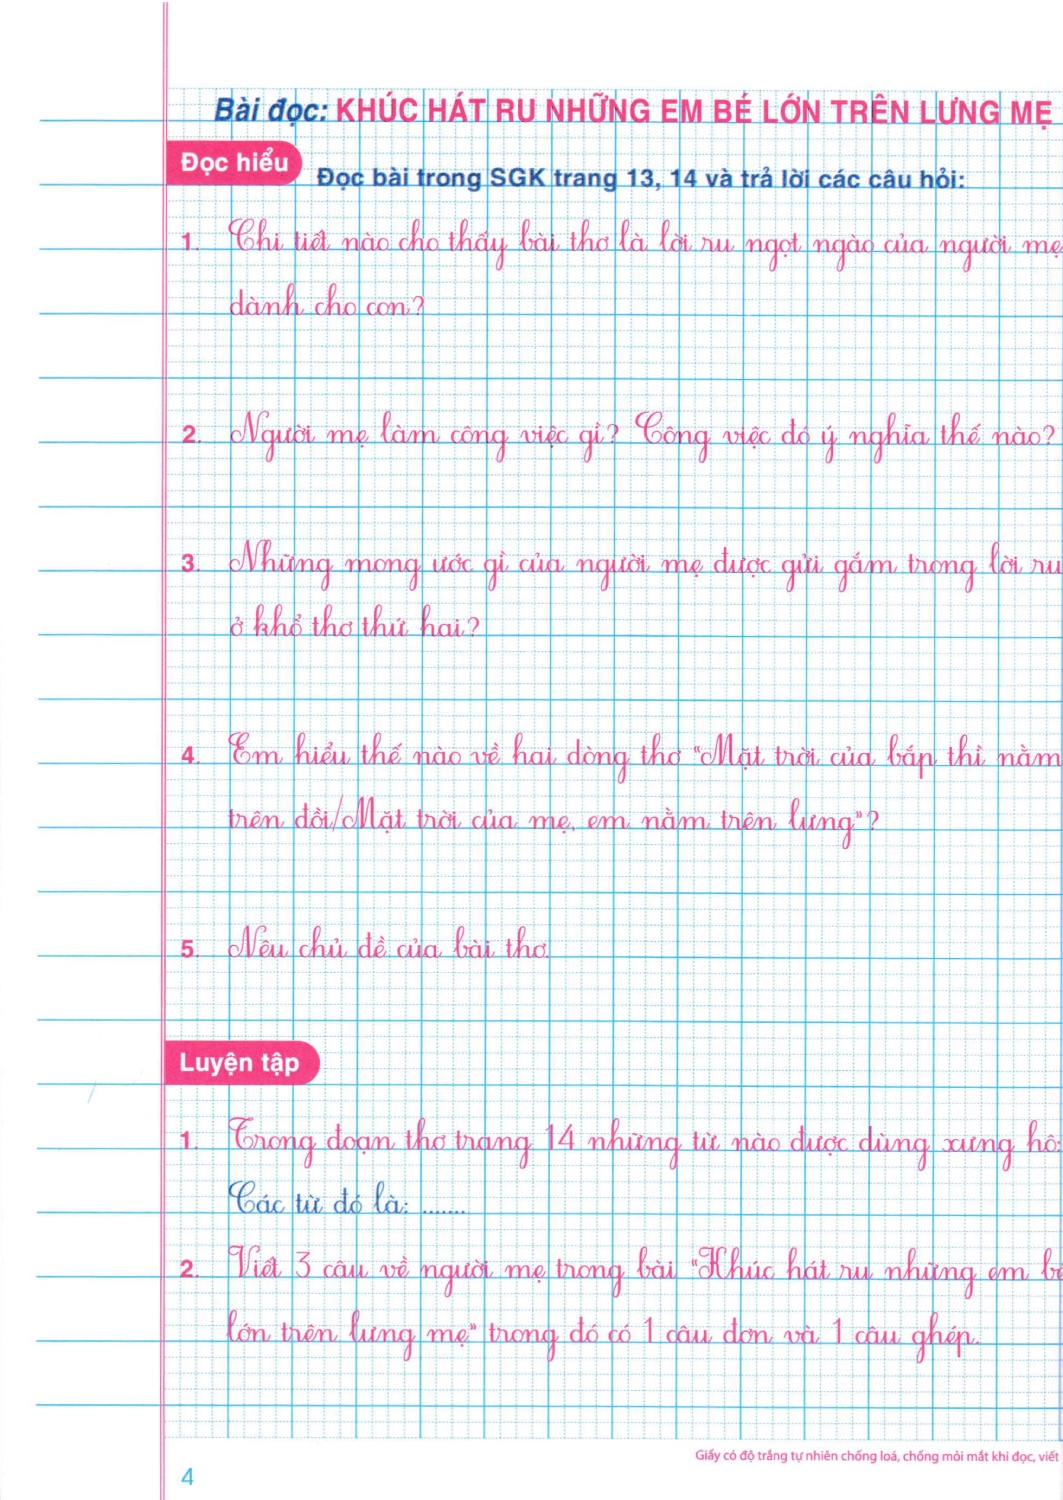 Bài đọc: KHÚC HÁT RU NHỮNG EM BÉ LỚN TRÊN LƯNG MẸ
Đọc hiểu
Đọc bài trong SGK trang 13, 14 và trả lời các câu hỏi:
1. Chi tiết nào cho thấy bài thơ là lời ru ngọt ngào của người mẹ
dành cho con?
2. Người mẹ làm công việc gì? Công việc đó ý nghĩa thế nào?
3. Những mong ước gì của người mẹ được gửi gắm trong lời ru
ở khổ thơ thứ hai?
4. Em hiểu thế nào về hai dòng thơ "Mặt trời của bắp thì nằm
trên đồi/Mặt trời của mẹ, em nằm trên lưng"?
5. Nêu chủ đề của bài thơ.
Luyện tập
1. Trong đoạn thơ trang 14 những từ nào được dùng xưng hô:
Các từ đó là: .......
2. Viết 3 câu về người mẹ trong bài "Khúc hát ru những em bé
lớn trên lưng mẹ" trong đó có 1 câu đơn và 1 câu ghép.
Giấy có độ trắng tự nhiên chống loá, chống mỏi mắt khi đọc, viết
4